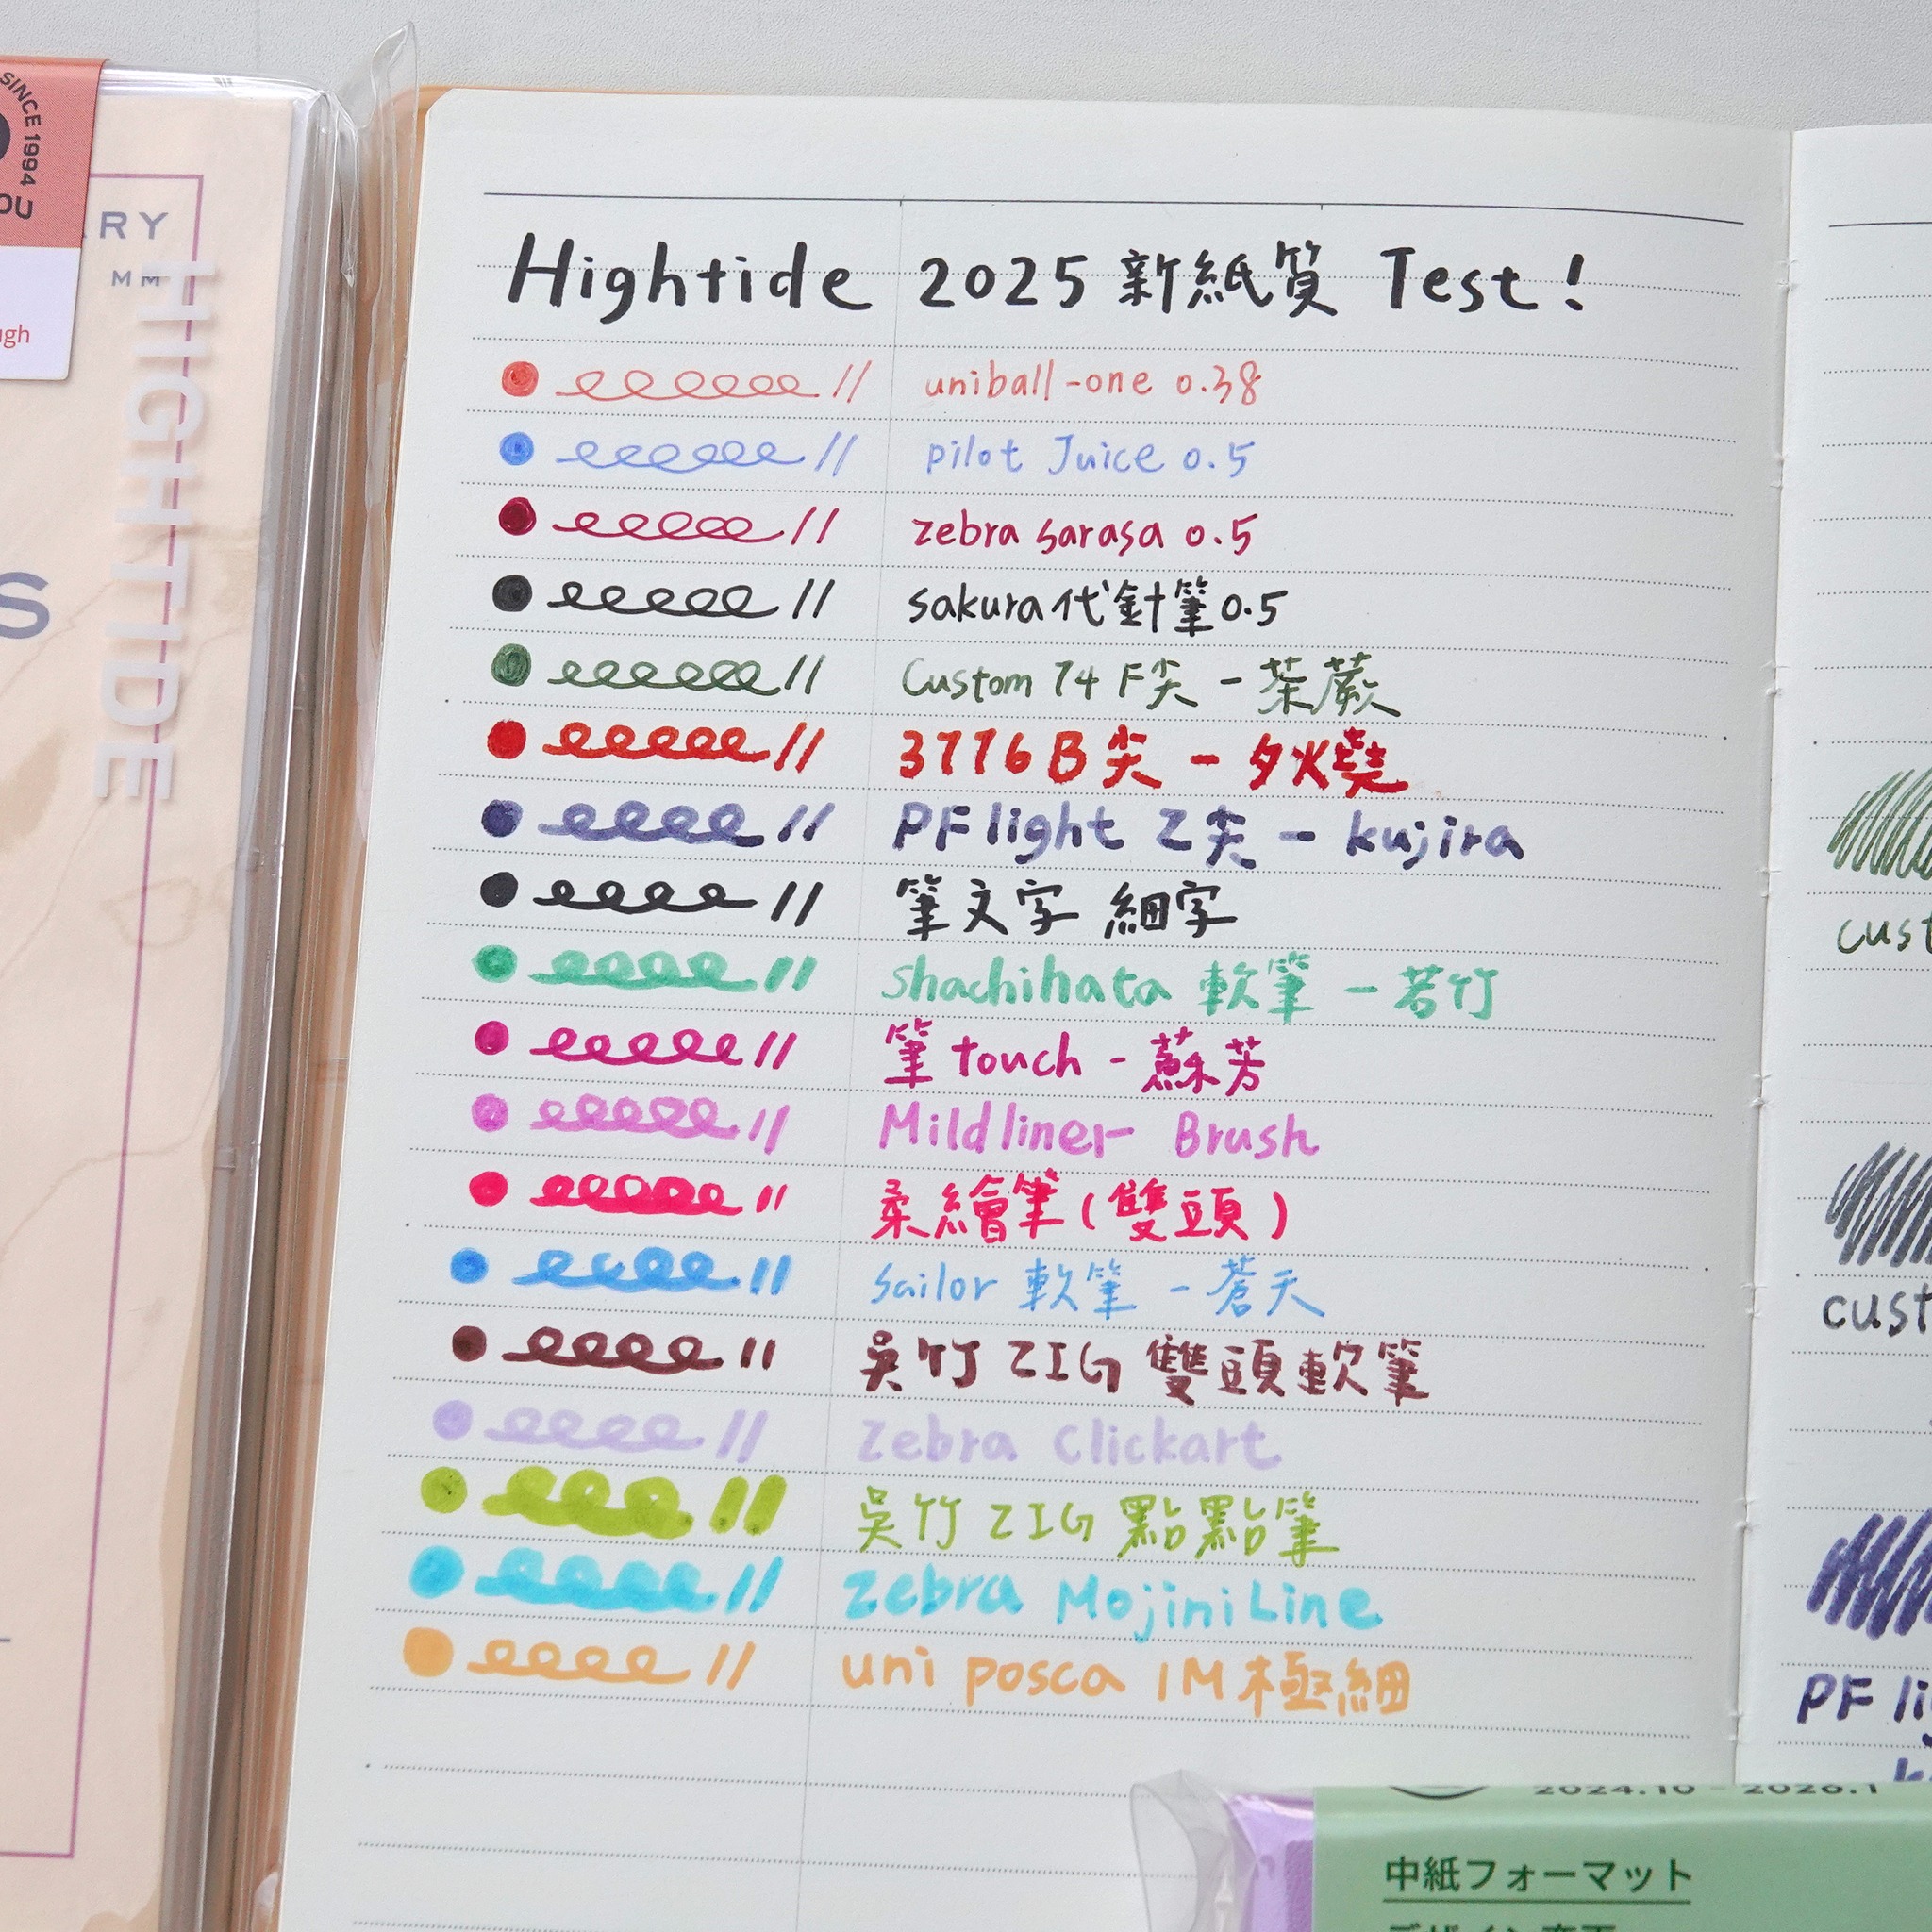 SINCE 1994
OU
RY
MM
ugh
HIGHTIDE
S
Hightide 2025 新紙質 Test!
uniball-one 0.38
pilot Juice 0.5
zebra sarasa 0.5
sakura代針筆0.5
Custom 74 F尖 - 茶蕨
3776 B尖 - 夕火燒
PF light Z尖 - kujira
筆文字 細字
shachihata 軟筆 - 若竹
筆touch - 蘇芳
Mildliner Brush
柔繪筆(雙頭)
sailor 軟筆 - 蒼天
吳竹 ZIG 雙頭軟筆
Zebra Clickart
吳竹 ZIG 點點筆
Zebra MojiniLine
uni posca 1M極細
cust
cust
PF li
k
2024.10 - 2026.1
中紙フォーマット